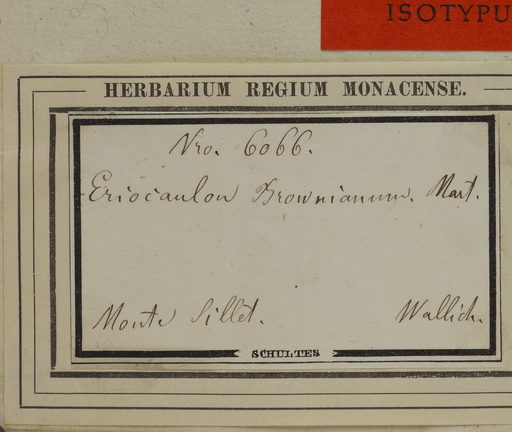 ISOTYPU
HERBARIUM REGIUM MONACENSE.
Nro. 6066.
Eriocaulon Brownianum. Mart.
Monte Sillet.
Wallich.
SCHULTES